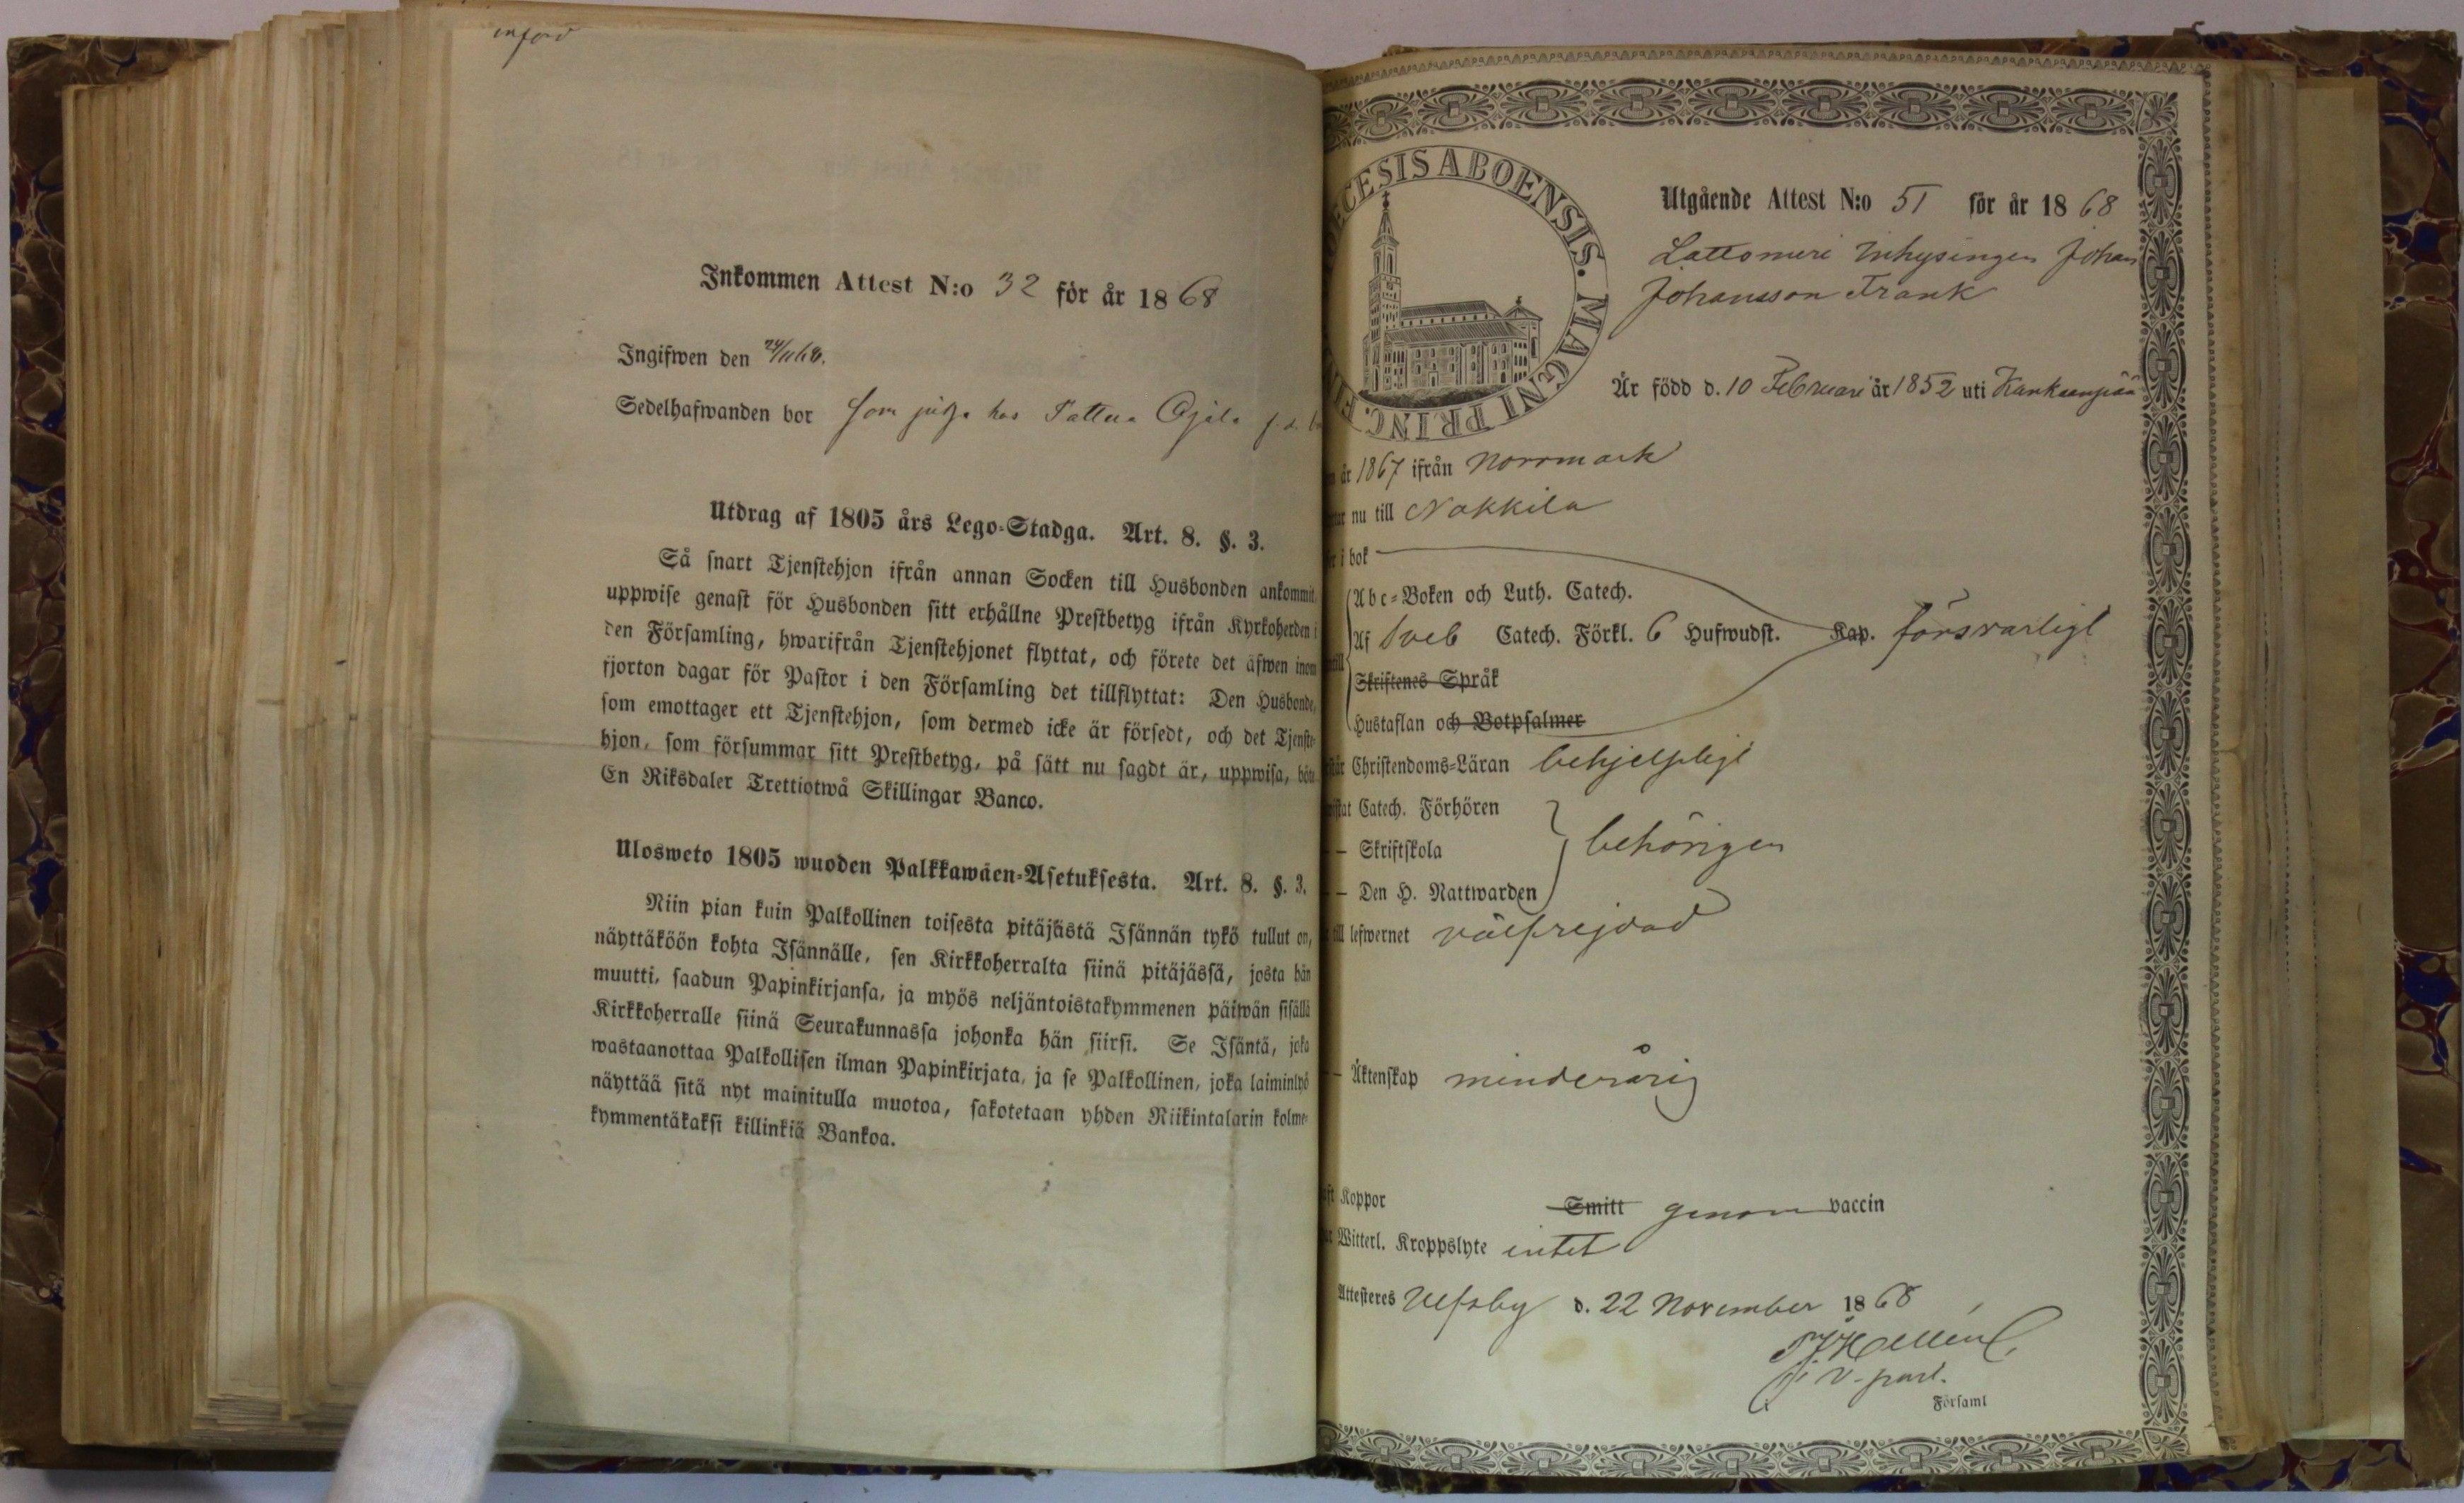 införd
Inkommen Attest N:o 32 för år 1868
Ingifwen den 24/11 68.
Sedelhafwanden bor som hos
Utdrag af 1805 års Lego-Stadga. Art. 8. §. 3.
Så snart Tjenstehjon ifrån annan Socken till Husbonden ankommit,
uppwise genast för Husbonden sitt erhållne Prestbetyg ifrån Kyrkoherden i
den Församling, hwarifrån Tjenstehjonet flyttat, och förete det äfwen inom
fjorton dagar för Pastor i den Församling det tillflyttat: Den Husbonde,
som emottager ett Tjenstehjon, som dermed icke är försedt, och det Tjenste-
hjon, som försummar sitt Prestbetyg, på sätt nu sagdt är, uppwisa, böte
En Riksdaler Trettiotwå Skillingar Banco.
Ulosweto 1805 wuoden Palkkawäen-Asetuksesta. Art. 8. §. 3.
Niin pian kuin Palkollinen toisesta pitäjästä Isännän tykö tullut on,
näyttäköön kohta Isännälle, sen Kirkkoherralta siinä pitäjässä, josta hän
muutti, saadun Papinkirjansa, ja myös neljäntoistakymmenen päiwän sisällä
Kirkkoherralle siinä Seurakunnassa johonka hän siirsi. Se Isäntä, joka
wastaanottaa Palkollisen ilman Papinkirjata, ja se Palkollinen, joka laiminlyö
näyttää sitä nyt mainitulla muotoa, sakotetaan yhden Riikintalarin kolme-
kymmentäkaksi killinkiä Bankoa.
ŒCESIS ABOENSIS. MAGNI PRINC. FIN
Utgående Attest N:o 51 för år 1868
Lattomeri Inhysingen Johan
Johansson Frank
Är född d. 10 Februari år 1852 uti Kankaanpää
år 1867 ifrån Norrmark
nu till Nakkila
i bok
Abc-Boken och Luth. Catech.
Af Sveb Catech. Förkl. 6 Hufwudst. Kap. försvarligt
Skriftenes Språk
Hustaflan och Botpsalmer
Christendoms-Läran behjelpligt
Catech. Förhören
Skriftskola behörigen
Den H. Nattwarden
till lefwernet välfrejdad
Äktenskap minderårig
Koppor Smitt genom vaccin
Witterl. Kroppslyte intet
Attesteres Ulfsby d. 22 November 1868
v. past.
Församl